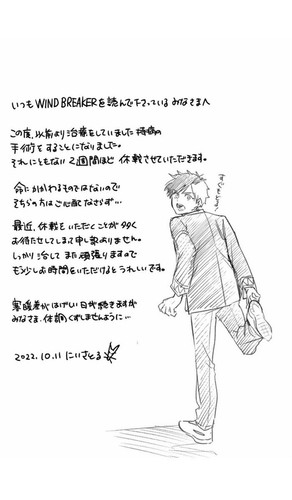 いつも WIND BREAKERを読んで下さっているみなさまへ
この度、以前より治療をしていました持病の
手術をすることになりました。
それにともない 2週間ほど 休載させていただきます。
命にかかわるものではないので
そちらの方はご心配なさらず…
最近、休載をいただくことが多く
お待たせしてしまって申し訳ありません。
しっかり治して また頑張りますので
もう少しお時間をいただけるとうれしいです。
寒暖差がはげしい日が続きますが
みなさま、体調くずしませんように…
2022.10.11 にいさとる